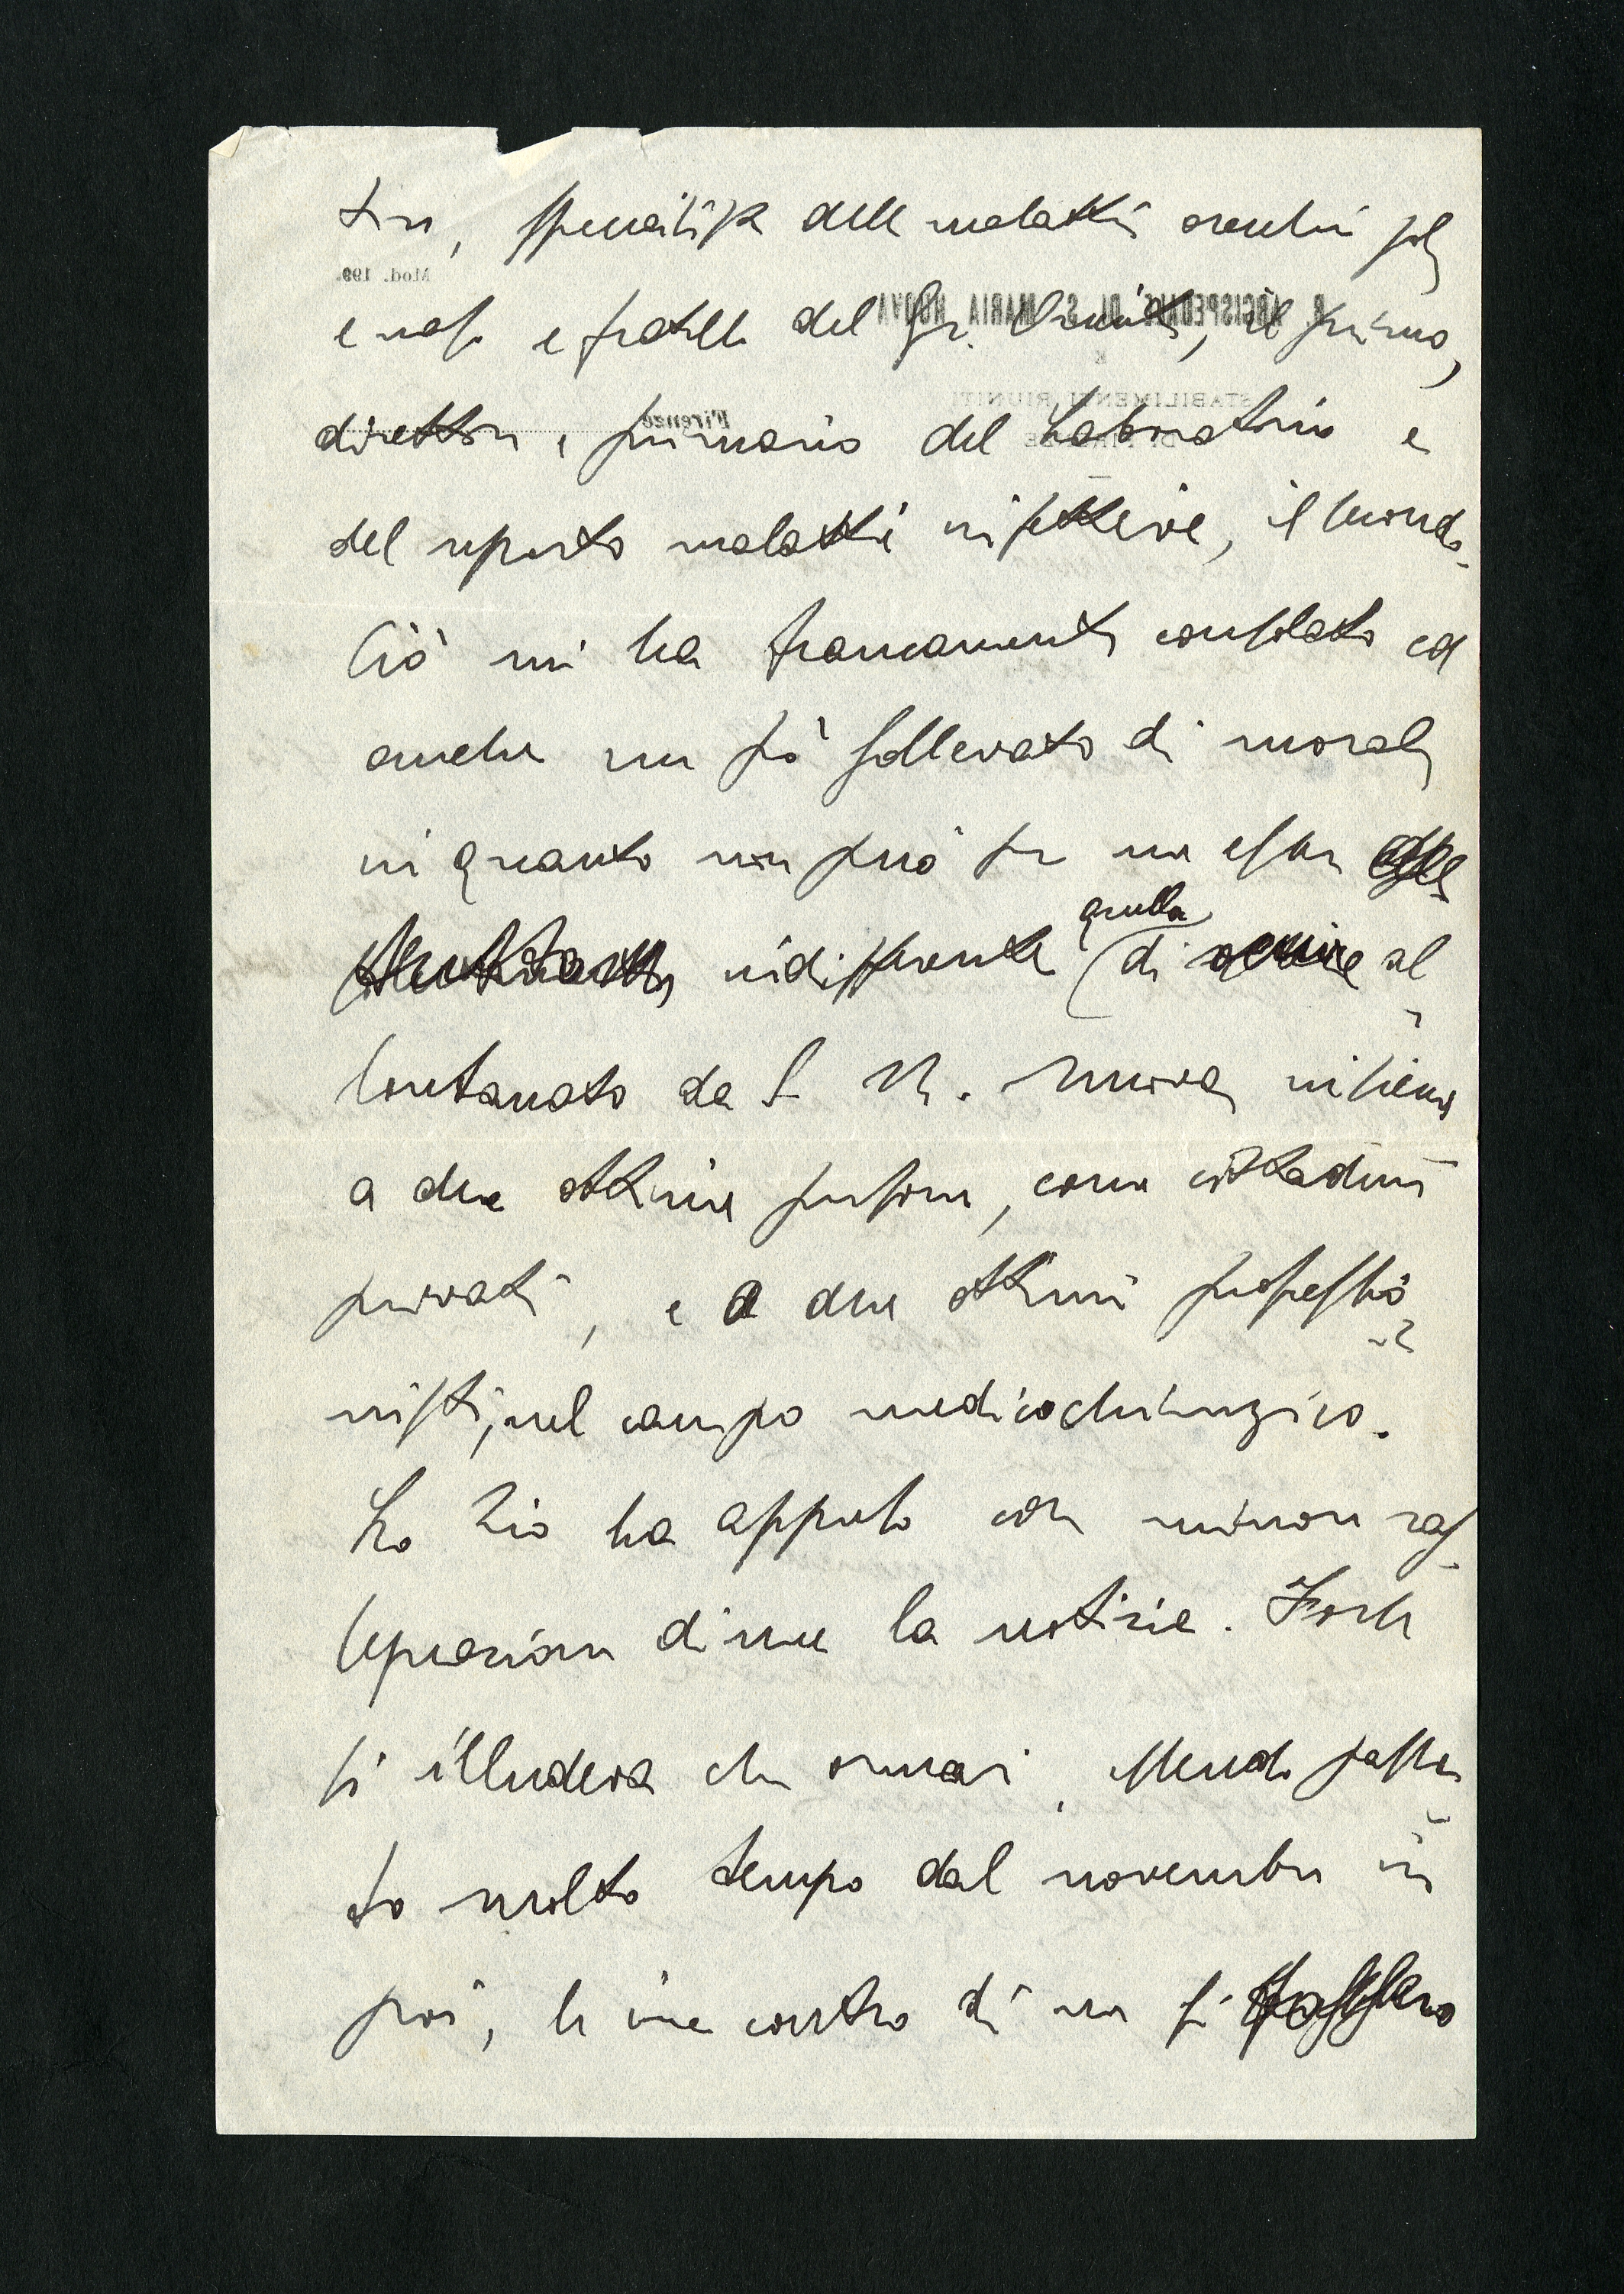 tore, specialista delle malattie orecchie gola
e naso e fratello del Gr. Comité, il primo,
direttore e primario del Laboratorio e
del reparto malattie infettive, il secondo.
Ciò mi ha francamente consolato ed
anche un pò sollevato di morale
in quanto non può per me esser
indifferente quella di al
lontanato da S. M. Nuova insieme
a due ottime persone, come cittadini
privati, e a due ottimi professio
nisti, nel campo medicochirurgico.
Lo Zio ha appreso con minore ras
segnazione di me la notizia. Forse
si illudeva che ormai, essendo passa
to molto tempo dal novembre in
poi, le ire contro di me si